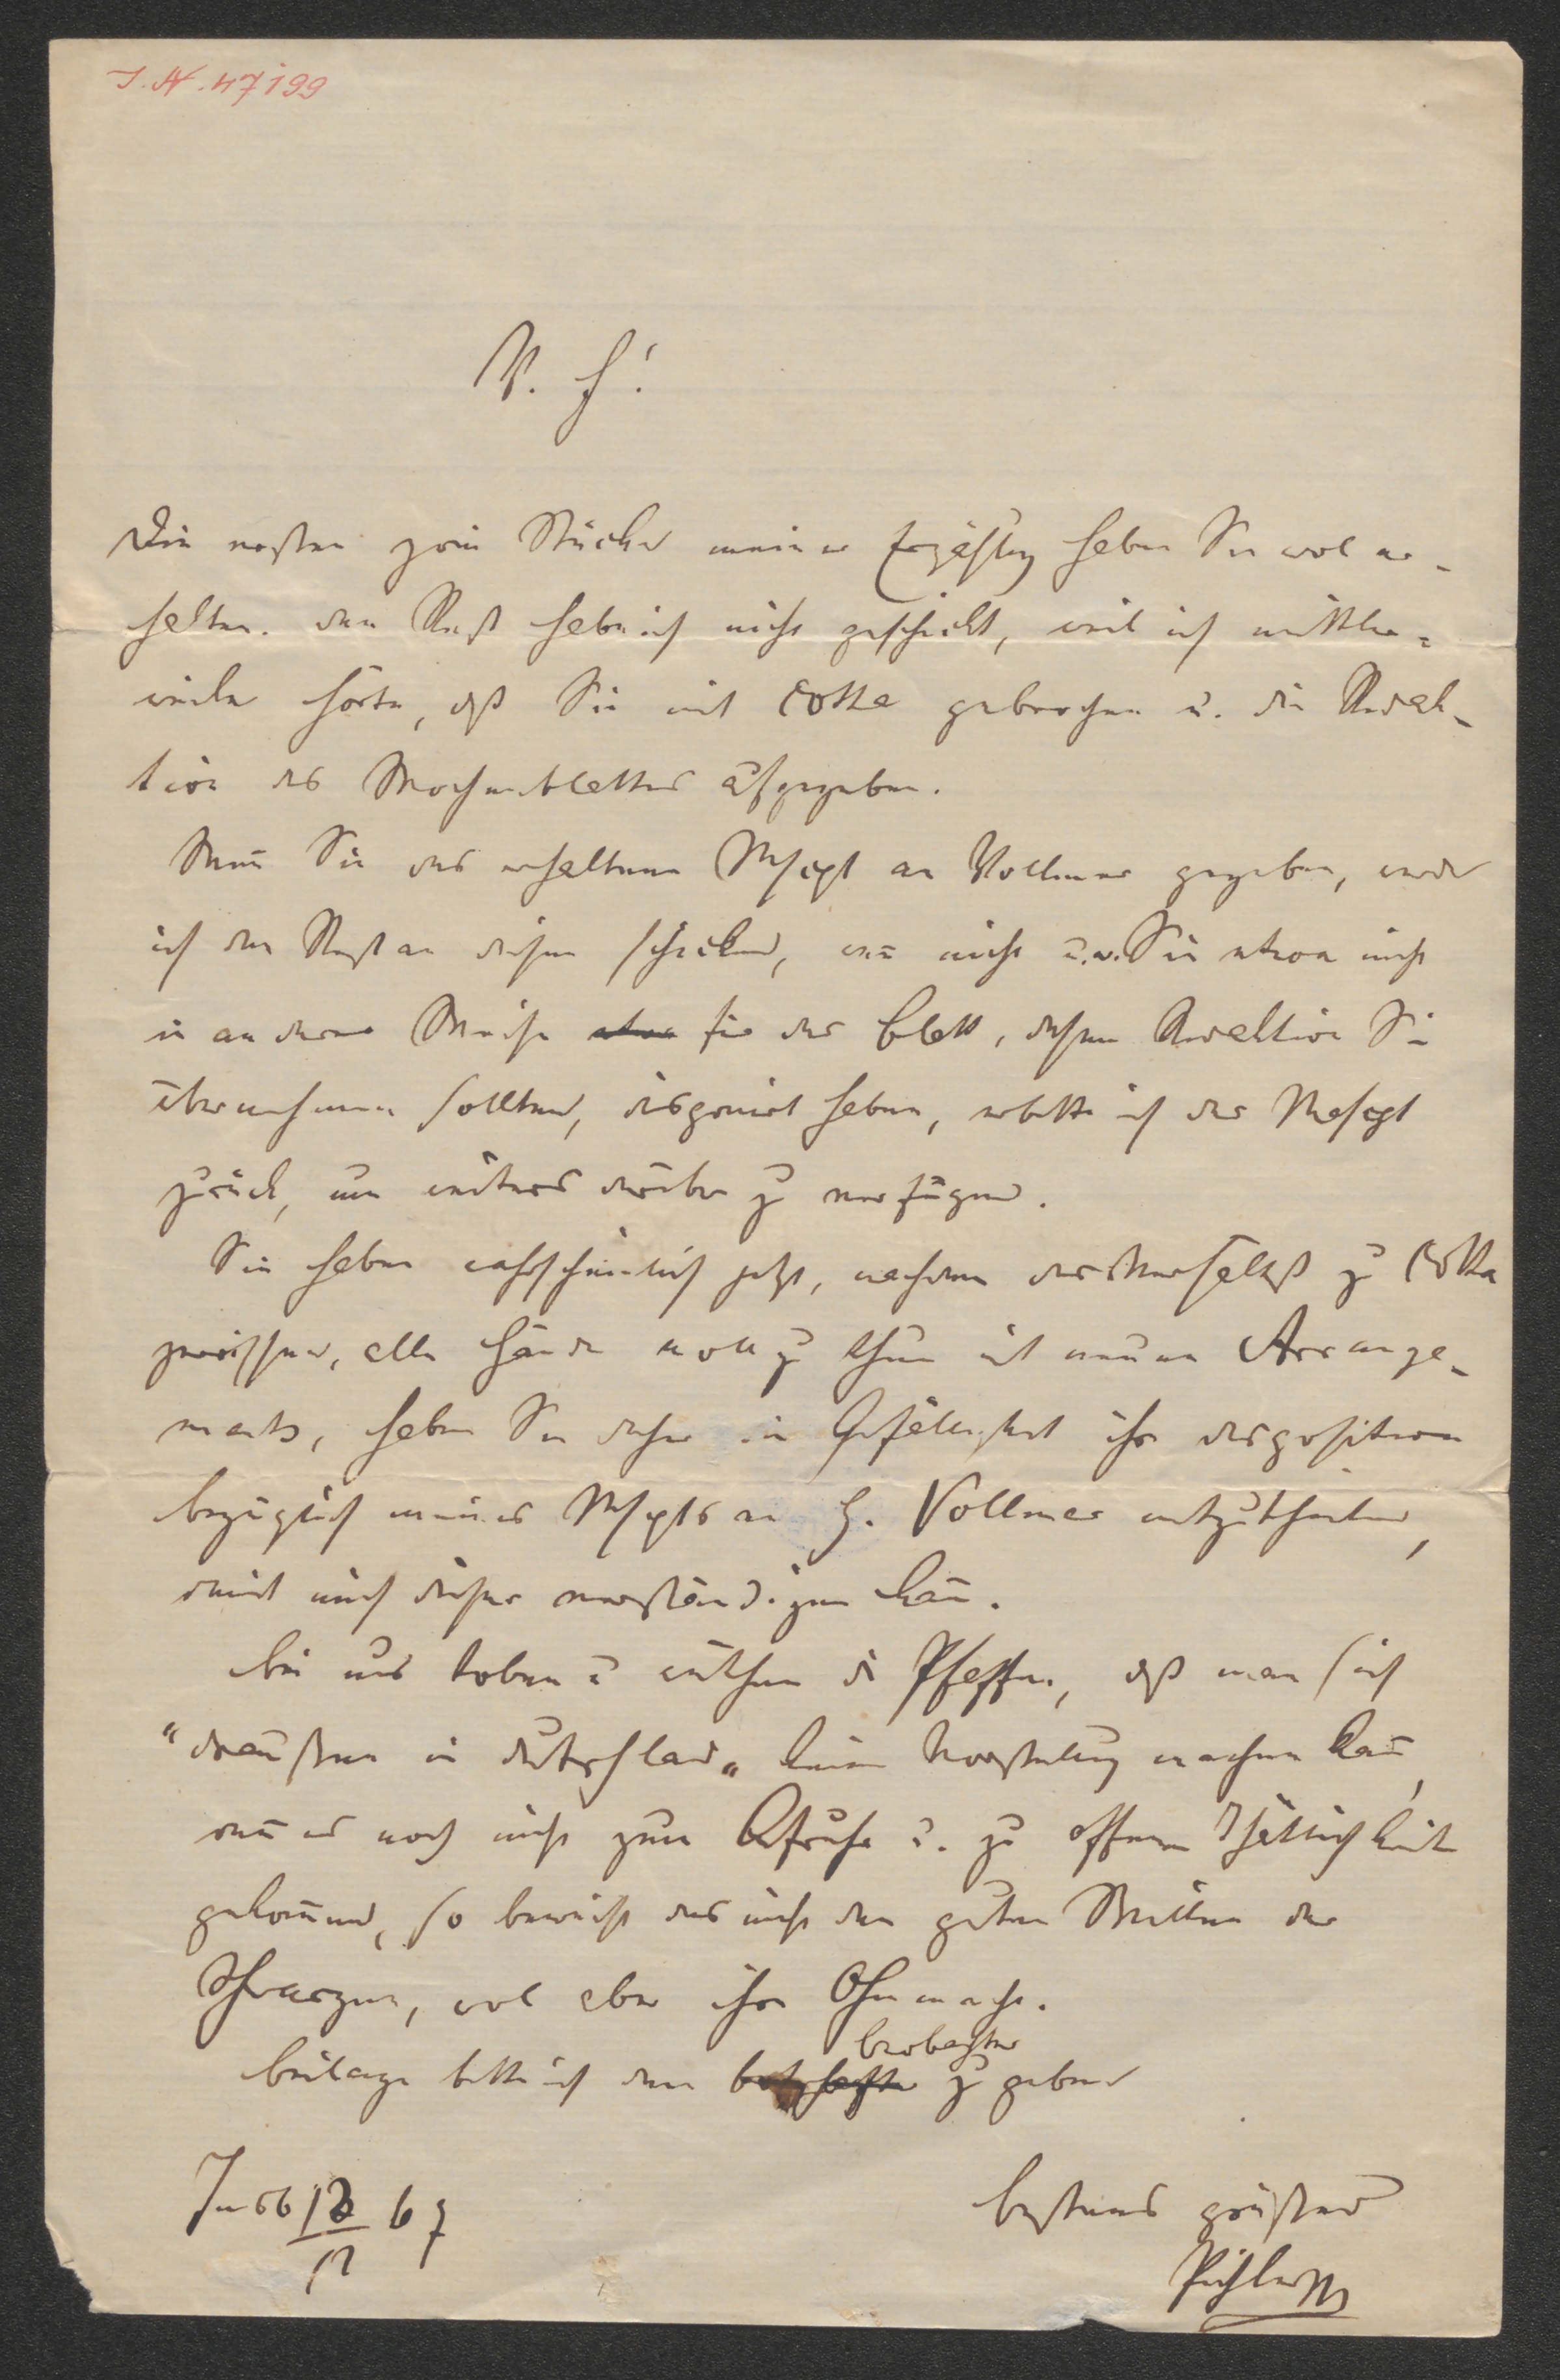 J. N. 47199
V. H!
Die ersten zwei Stücke meiner Erzählung haben Sie wol er-
halten. den Rest habe ich nicht geschickt, weil ich mittler-
weile hörte, daß Sie mit Cotta gebrochen u. die Redak-
tion des Wochenblattes aufgegeben.
Wenn Sie das erhaltene Mscpt an Vollmer gegeben, werde
ich den Rest an diesen schicken, wen̄ nicht u. w. Sie etwa nicht
in anderer Weise etwa für das Blatt, dessen Redaktion Sie
übernehmen sollten, disponirt haben, erbitte ich das Mscpt
zurück, um weiters darüber zu verfügen.
Sie haben wahrscheinlich jetzt, nachdem das Verhältniß zu Cotta
zerrissen, alle Hände voll zu thun mit neuen Arrange-
ments, haben Sie daher die Gefälligkeit ihre disposition
bezüglich meines Mscpts an H. Vollmer mitzutheilen,
damit mich dieser verständigen kan̄.
Bei uns toben u wüthen di Pfaffen, daß man sich
"draußen in deutschland" keine Vorstellung machen kan̄,
wen̄ es noch nicht zum Aufruhr u. zu offener Thätlichkeit
gekom̄en, so beweist das nicht den guten Willen der
Schwarzen, wol aber ihre Ohnmacht.
Beilage bitte ich dem beobachter zu geben
Insb 12/12 67
bestens grüßend
Pichler